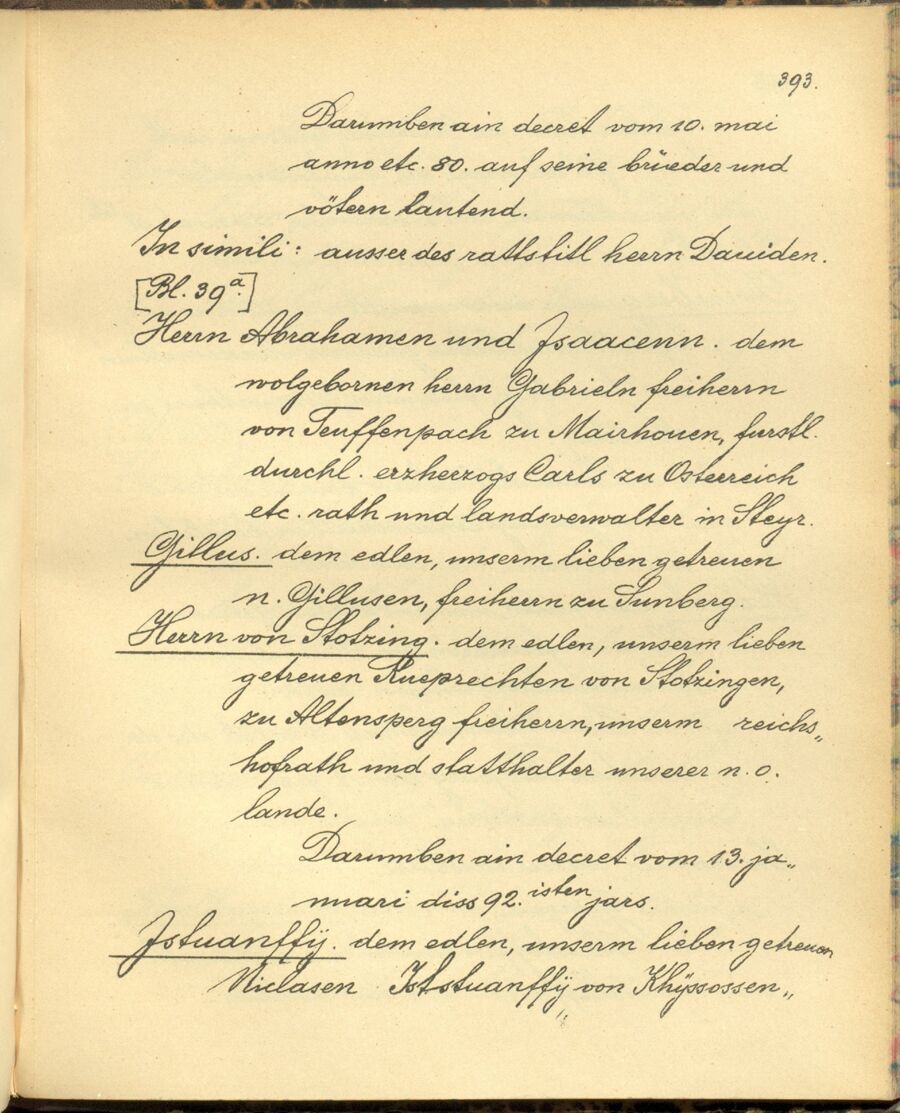 393.
Darumben ain decret vom 10. mai
anno etc. 80. auf seine brüeder und
vötern lautend.
In simili: ausser des rattstitl herrn Dauiden.
[Bl. 39a.]
Herrn Abrahamen und Isaacenn. dem
wolgebornen herrn Gabrieln freiherrn
von Teuffenpach zu Mairhouen, furstl.
durchl. erzherzogs Carls zu Osterreich
etc. rath und landsverwalter in Steyr.
Gillus. dem edlen, unserm lieben getreuen
n. Gillusen, freiherrn zu Sunberg.
Herrn von Stotzing. dem edlen, unserm lieben
getreuen Rueprechten von Stotzingen,
zu Altensperg freiherrn, unserm reichs„
hofrath und statthalter unserer n. o.
lande.
Darumben ain decret vom 13. ja„
nuari diss 92.isten jars.
Istuanffÿ. dem edlen, unserm lieben getreuen
Niclasen Iststuanffÿ von Khÿssossen„